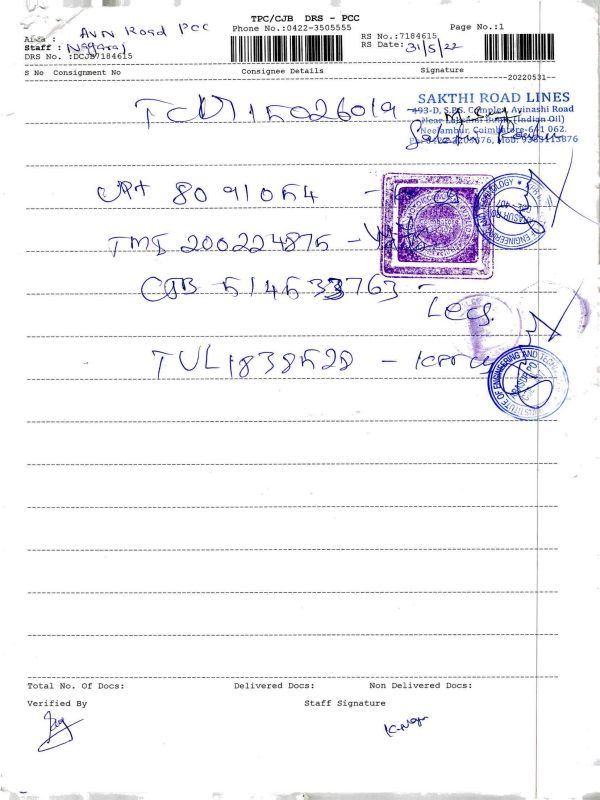 TPC/CJB DRS - PCC
Area : AVN Road PCC
Phone No.:0422-3505555
RS No.:7184615
Page No.:1
Staff : Nagaraj
RS Date: 31/5/22
DRS No. :DCJB7184615
S No Consignment No Consignee Details Signature
20220531
TCN 15026019 -
SAKTHI ROAD LINES
493-D, S.P.S. Complex, Avinashi Road
Near Lakshmi Bunk (Indian Oil)
Neelambur, Coimbatore-641 062.
8091054 -
TMI 200224875 -
CJB 514533763 -
TUL 1838528 -
INSTITUTE OF ENGINEERING AND
Total No. Of Docs: Delivered Docs: Non Delivered Docs:
Verified By Staff Signature